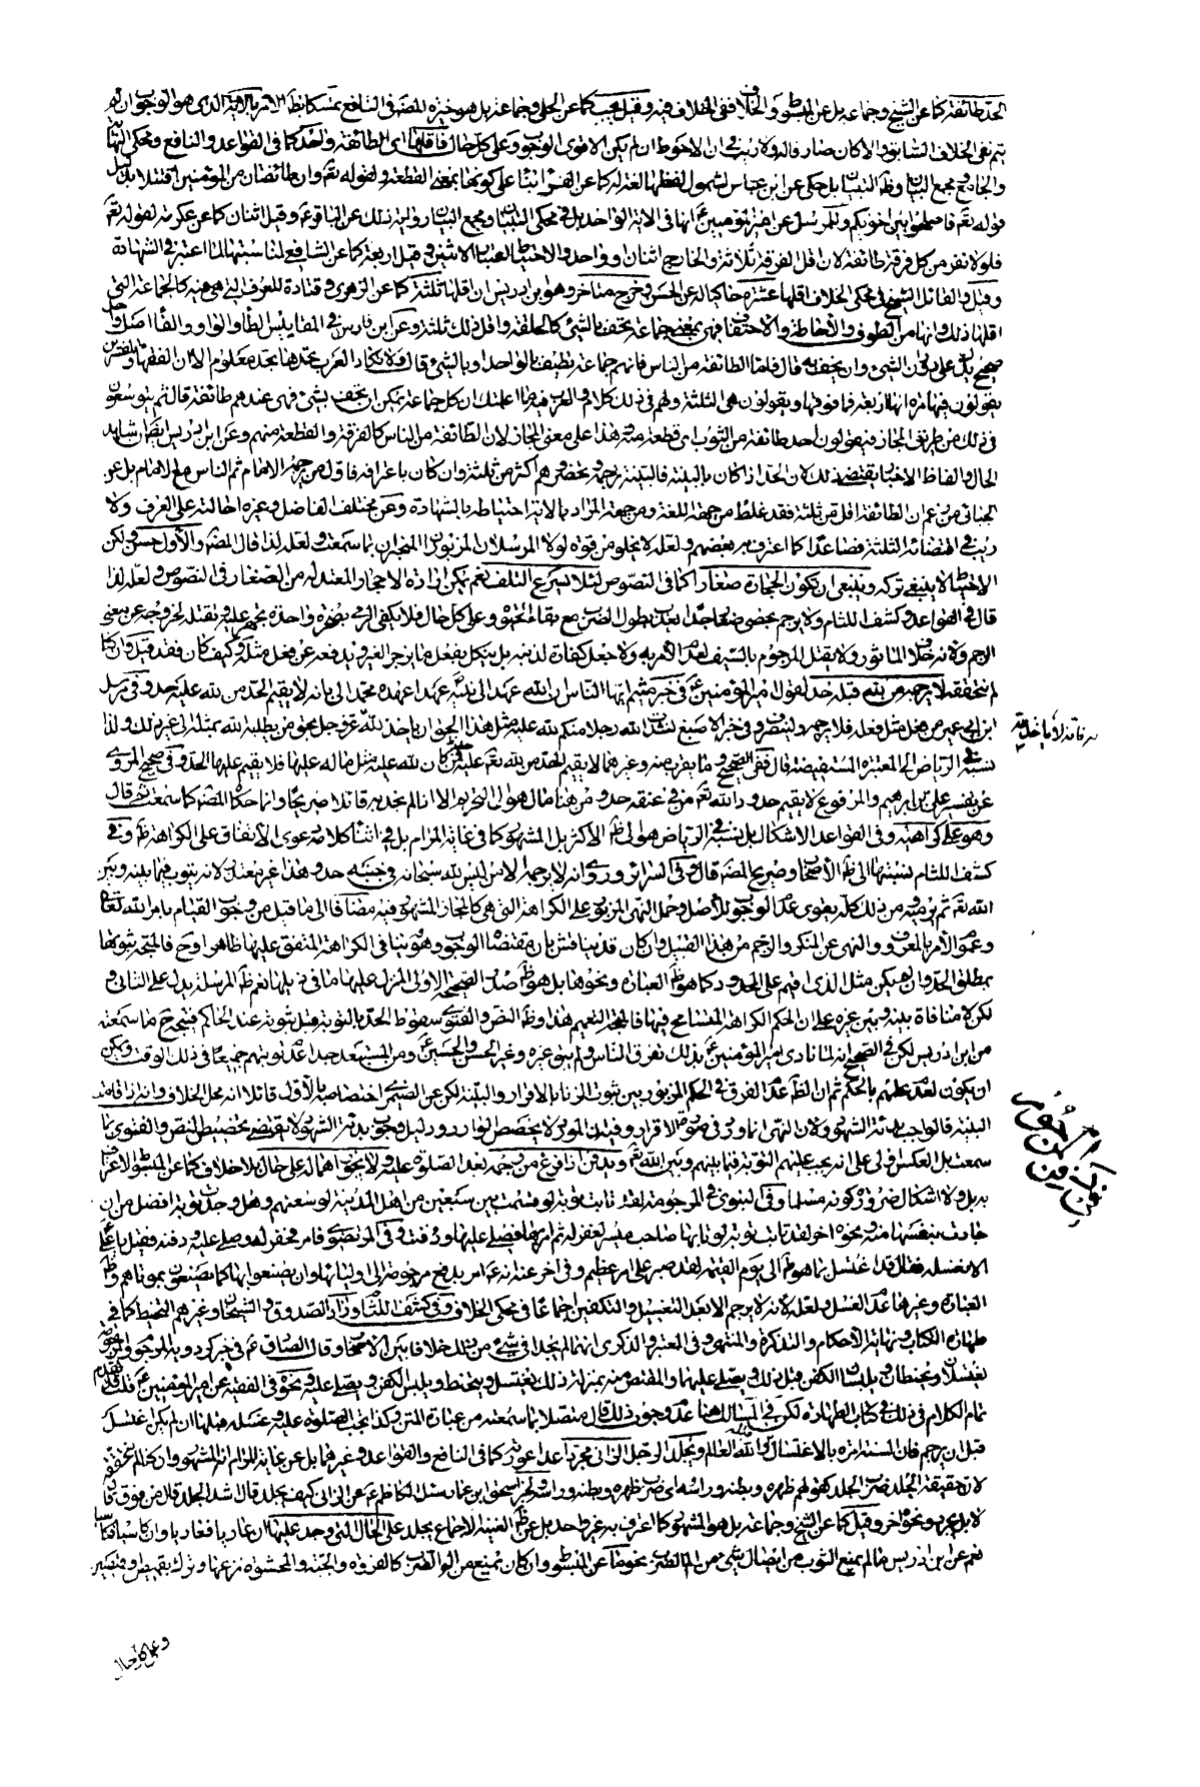 الحد طائفة كما عن الشيخ وجماعة بل عن المبسوط والخلاف نفى الخلاف فيه وقيل يجب كما عن الحلي وجماعة بل هو خيرة المصنف في النافع تمسكا بظاهر الامر بالاية الذي هو الوجوب ان لم
يتم نفى الخلاف السابق والا كان صارفا له ولا ريب في ان الاحوط ان لم يكن الاقوى الوجوب وعلى كل حال فاقلها اى الطائفة واحد كما في القواعد والنافع ومحكى النهاية
والجامع ومجمع البيان وظاهر التبيان بل حكى عن ابن عباس لشمول لفظها لغة له كما عن الفراء بناء على كونها بمعنى القطعة ولقوله تعالى وان طائفتان من المؤمنين اقتتلا بدليل
قوله تعالى فاصلحوا بين اخويكم وللمرسل عن امير المؤمنين ع انها في الاية الواحد بل في محكى التبيان ومجمع البيان رواية ذلك عن الباقر ع وقيل اثنان كما عن عكرمة لقوله تعالى
فلولا نفر من كل فرقة طائفة لان اقل الفرقة ثلاثة والخارج اثنان او واحد والاحتياط اعتبار الاثنين وقيل اربعة كما عن الشافعي لمناسبتها لما اعتبر في الشهادة
وقيل والقائل الشيخ في محكى الخلاف اقلها عشرة حاكيا له عن الحسن وخرج متاخر وهو ابن ادريس ان اقلها ثلثة كما عن الزهري وقتادة للعرف اذ هي منه كالجماعة التي
اقلها ذلك وانها من الطوف والاحاطة والاحتفاف فهي بمعنى جماعة تحف بالشيء كالحلقة واقل ذلك ثلثة وعن ابن فارس في المقاييس الطاء والواو والفاء اصل واحد
صحيح يدل على دوران الشيء وان يحف به قال فاما الطائفة من الناس فانهم جماعة تطيف بالواحد او بالشيء قال ولا تكاد العرب تحدها بحد معلوم الا ان الفقهاء والمفسرين
يقولون فيها مرة انها اربعة فما فوقها ويقولون هي الثلثة ولهم في ذلك كلام والعرب فيه ما اعلمتك ان كل جماعة يمكن ان تحف بشيء فهي عندهم طائفة قال ثم يتوسعون
في ذلك من طريق المجاز فيقولون اخذت طائفة من الثوب اى قطعة منه وهذا على معنى المجاز لان الطائفة من الناس كالفرقة والقطعة منهم وعن ابن ادريس ايضا ان شاهد
الحال والفاظ الاخبار يقتضى ذلك لان الحد اذا كان بالبينة فالبينة ترجمه وتحضر وهم اكثر من ثلثة وان كان باعترافه فاول من يرجمه الامام ثم الناس مع الامام بل عن
الجبائي من زعم ان الطائفة اقل من ثلثة فقد غلط من جهة اللغة ومن جهة المراد بالاية احتياطه بالشهادة وعن مختلف الفاضل وغيره احالته على العرف ولا
ريب في اقتضائه الثلثة فصاعدا كما اعترف به بعضهم ولعله لا يخلو من قوة لولا المرسلان المزبوران المنجبران بما سمعت ولعله لذا قال المصنف والاول حسن ولكن
الاحتياط لا ينبغي تركه وينبغي ان تكون الحجارة صغارا كما في النصوص لئلا يسرع التلف نعم يمكن ارادة الاحجار المعتدلة من الصغار في النصوص ولعله لذا
قال في القواعد وكشف اللثام ولا يرجم بحصى صغار جدا لعذابه بطول الضرب مع بقاء الحياة وعلى كل حال فلا يكفى الرمى بصخرة واحدة تجهز عليه وتقتله لخروجه عن معنى
الرجم ولانه خلاف الماثور ولا يقتل المرجوم بالسيف لعدم الامر به ولا جعل كفارة لذنبه بل ينكل بفعل ما يزجر الغير ويدفعه عن فعل مثله وكيف كان فقد قيل وان كنا
لم نتحققه لا يرجمه من لله قبله حد لقول امير المؤمنين ع في خبر ميثم ايها الناس ان الله عهد الى نبيه ع عهدا عهده محمد الي بانه لا يقيم الحد من لله عليه حد وفي مرسل
ابن ابي عمير من فعل مثل فعله فلا يرجمه ولينصرف وفي خبر الاصبغ نشدت الله رجلا منكم لله عليه مثل هذا الحق ان ياخذ لله عز وجل بحق من يطلبه الله بمثله الى غير ذلك ولذا
نسبه في الرياض الى المعتبرة المستفيضة قال ففي الصحيح وما يقرب منه وغيرهما لا يقيم الحد من لله تعالى عليه حد فمن كان لله عليه مثل ما له عليها فلا يقيم عليها الحد وفي صحيح المروي
عن تفسير علي بن ابراهيم والمرفوع لا يقيم حدود الله تعالى من في عنقه حد ومن هنا مال هو الى التحريم الا انا لم نجد به قائلا صريحا وانما حكاه المصنف كما سمعت نعم قال
وهو على كراهية وفي القواعد الاشكال بل نسبه في الرياض هو الى ظاهر الاكثر بل المشهور كما في غاية المرام بل في اثناء كلامه دعوى الاتفاق على الكراهة ظاهرا وفي
كشف اللثام نسبتها الى ظاهر الاصحاب وصريح المصنف قال وفي السرائر وروى انه لا يرجمه الا من ليس لله سبحانه في جنبه حد وهذا غير متعذر لانه يتوب فيما بينه وبين
الله تعالى ثم يرميه ومن ذلك كله يقوى عدم الوجوب للاصل وحمل النهى المزبور على الكراهة التي هي كالمجاز المشهور فيه مضافا الى ما قيل من وجوب القيام بامر الله تعالى
وعموم الامر بالمعروف والنهي عن المنكر والرجم من هذا القبيل وان كان قد يناقش بان مقتضاه الوجوب وهو ينافي الكراهة المتفق عليها ظاهرا وح فالمتجه ثبوتها
بمطلق الحد وان لم يكن مثل الذي اقيم على المحدود كما هو ظاهر العبارة ونحوها بل هو ظاهر صدر الصحيحة الاولى المنزل عليها ما في ذيلها نعم ظاهر المرسلة يدل على الثاني و
لكن لا منافاة بينه وبين غيره على ان الحكم الكراهة المتسامح فيها فالمتجه التعميم هذا وظاهر النص والفتوى سقوط الحد بالتوبة قبل ثبوته عند الحاكم فيتجه ح ما سمعته
من ابن ادريس لكن في الصحيح انه لما نادى امير المؤمنين ع بذلك تفرق الناس ولم يبق غيره وغير الحسن والحسين ع ومن المستبعد جدا عدم توبتهم جميعا في ذلك الوقت ويمكن
ان يكون لعدم علمهم بالحكم ثم ان الظاهر عدم الفرق في الحكم المزبور بين ثبوت الزنا بالاقرار والبينة لكن عن الصيمري اختصاصه بالاول قائلا انه محل الخلاف وانه اذا قامت
البينة فالواجب بدأة الشهود ولان النهى انما ورد في صورة الاقرار وفيه ان المورد لا يخصص الوارد ودليل وجوب بدأة الشهود لا يقتضى تخصيص النص والفتوى بما
سمعت بل العكس اولى على انه يجب عليهم التوبة فيما بينهم وبين الله تعالى ويدفن اذا فرغ من رجمه بعد الصلوة عليه ولا يجوز اهماله على حال بلا خلاف كما عن المبسوط الاعتراف
به بل ولا اشكال ضرورة كونه مسلما وفي النبوي في المرجومة لقد تابت توبة لو قسمت بين سبعين من اهل المدينة لوسعتهم وهل وجدت توبة افضل من ان
جادت بنفسها منه ونحوه اخر لقد تابت توبة لو تابها صاحب ميسر لغفر له ثم امر بها فصلى عليها ودفنت وفي المرتضوى فامر فحفر له وصلى عليه ودفنه فقيل يا علي
الا تغسله فقال قد اغتسل بما هو طاهر الى يوم القيمة لقد صبر على امر عظيم وفي اخر عنه انه ع امر بدفع مرجومة الى اوليائها وان يصنعوا بها كما يصنعون بموتاهم وظاهر
العبارة وغيرها عدم الغسل ولعله لانه لا يرجم الا بعد التغسيل والتكفين اجماعا في محكى الخلاف وفي كشف اللثام وزاد الصدوق والشيخان وغيرهم التحنيط كما في
طهارة الكتاب ونهاية الاحكام والتذكرة والمنتهى وفي المعتبر والذكرى انهما لم يجدا في شيء من ذلك خلافا بين الاصحاب وقال الصادق ع في خبر كردويه المرجوم والمرجومة
يغسلان ويحنطان ويلبسان الكفن قبل ذلك ويصلى عليهما والمقتص منه بمنزلة ذلك يغتسل ويحنط ويلبس الكفن ويصلى عليه ونحوه في الفقيه عن امير المؤمنين ع قلت قد تقدم
تمام الكلام في ذلك في كتاب الطهارة لكن في المسالك هنا عدم وجوب ذلك قال متصلا بما سمعته من عبارة المتن وكذا تجب الصلوة عليه وغسله قبلها ان لم يكن اغتسل
قبل ان يرجم فان السنة امره بالاغتسال والله العالم ويجلد الرجل الزاني مجردا عدا عورته كما في النافع والقواعد وغيرهما بل عن غاية المرام انه المشهور وان كنا لم نتحققه
لان حقيقة الجلد ضرب الجلد كقولهم ظهره وبطنه وراسه اى ضرب ظهره وبطنه وراسه ولخبر اسحق بن عمار سئل الكاظم ع عن الزاني كيف يجلد قال اشد الجلد قلت من فوق ثيابه قال
لا بل يجرد ونحوه اخر وقيل كما عن الشيخ وجماعة بل هو المشهور كما اعترف به غير واحد بل عن ظاهر الغنية الاجماع يجلد على الحال التي وجد عليها ان عاريا فعاريا وان كاسيا فكاسيا
نعم عن ابن ادريس ما لم يمنع الثوب من ايصال شيء من الم الضرب ونحوه عن المبسوط وان كان يمنع من الم الضرب كالفروة والجبة والمحشوة نزعها وترك بقميص او قميصين
وعلى كل حال